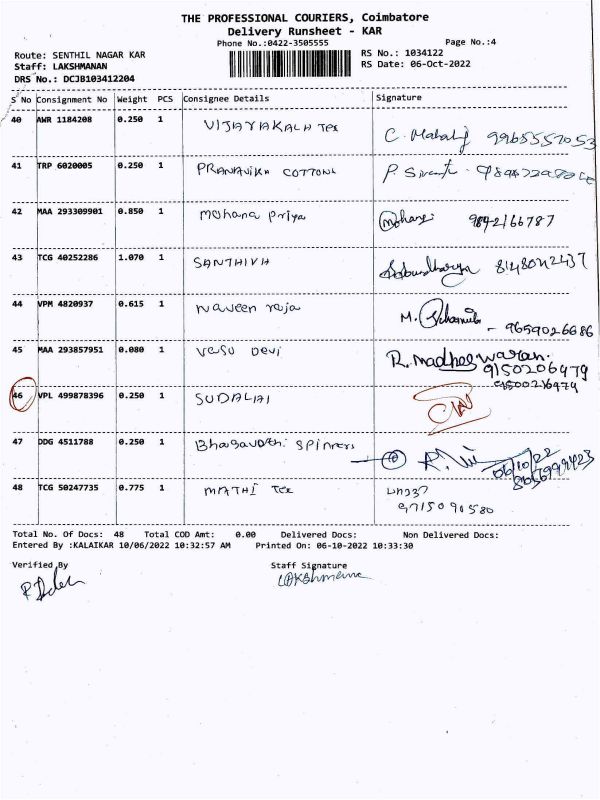 THE PROFESSIONAL COURIERS, Coimbatore
Delivery Runsheet - KAR
Phone No.:0422-3505555
Page No.:4
Route: SENTHIL NAGAR KAR
RS No.: 1034122
Staff: LAKSHMANAN
RS Date: 06-Oct-2022
DRS No.: DCJB103412204
S No Consignment No Weight PCS Consignee Details Signature
40 AWR 1184208 0.250 1 VIJAYAKALA Tex
C. Mahalij 9965557053
41 TRP 6020005 0.250 1 PRANAVIKA COTTONS
P.
42 MAA 293309901 0.850 1 Mohana Priya
9842166787
43 TCG 40252286 1.070 1 SANTHIYA
8148042437
44 VPM 4820937 0.615 1 Naveen raja
M. - 9659026686
45 MAA 293857951 0.080 1 Vasu Devi R. Madheswaran.
9150206479
91500216479
46 VPL 499878396 0.250 1 SUDALAI
47 DDG 4511788 0.250 1 Bhagavathi Spinners
06/10/22
48 TCG 50247735 0.775 1 MATHI Tex
9715090580
Total No. Of Docs: 48 Total COD Amt: 0.00 Delivered Docs: Non Delivered Docs:
Entered By :KALAIKAR 10/06/2022 10:32:57 AM Printed On: 06-10-2022 10:33:30
Verified By
Staff Signature
Lakshmana